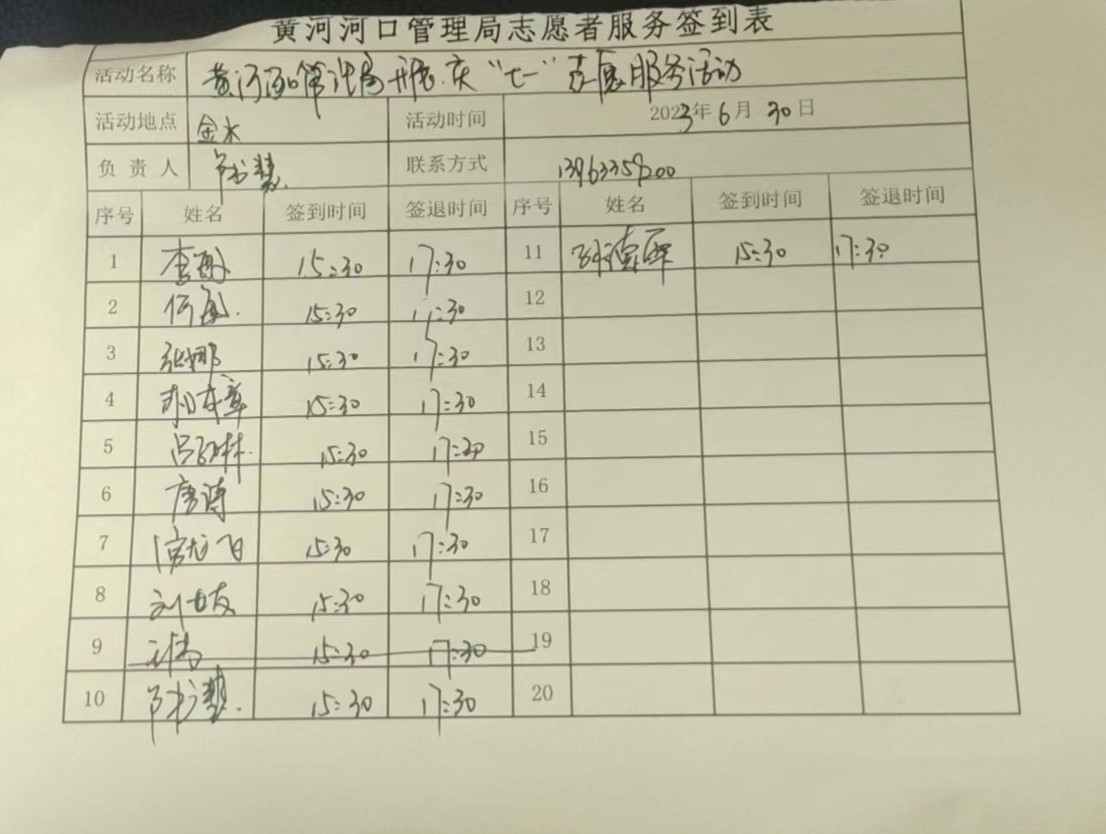 黄河河口管理局志愿者服务签到表
活动名称 黄河河口管理局开展庆“七一”志愿服务活动
活动地点 金水 活动时间 2023年6月30日
负责人 联系方式 13963359200
序号 姓名 签到时间 签退时间 序号 姓名 签到时间 签退时间
1 李丹 15:30 17:30 11 15:30 17:30
2 何敏 15:30 17:30 12
3 张娜 15:30 17:30 13
4 15:30 17:30 14
5 15:30 17:30 15
6 唐涛 15:30 17:30 16
7 15:30 17:30 17
8 15:30 17:30 18
9 15:30 17:30 19
10 15:30 17:30 20